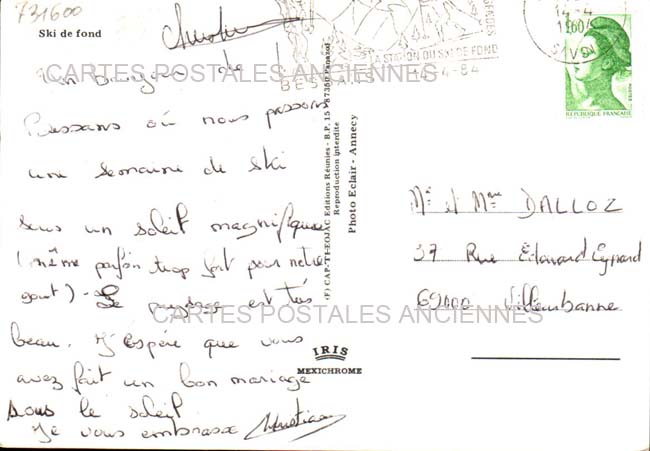 731600
Ski de fond
Un bonjour de
Bessans où nous passons
une semaine de ski
sous un soleil magnifique
(même parfois trop fort pour notre
gout) - Le paysage est très
beau. J'espère que vous
avez fait un bon mariage
sous le soleil
Je vous embrasse
CARTES POSTALES ANCIENNES
CARTES POSTALES ANCIENNES
(F) CAP-THEOJAC Editions Réunies - B.P. 15 - 87350 Panazol
Reproduction interdite
Photo Eclair - Annecy
IRIS
MEXICHROME
LA STATION DU SKI DE FOND
BESSANS
14-4
SAVOIE
REPUBLIQUE FRANÇAISE
Mr et Mme DALLOZ
37 Rue Edouard Eynard
69000 Villeurbanne